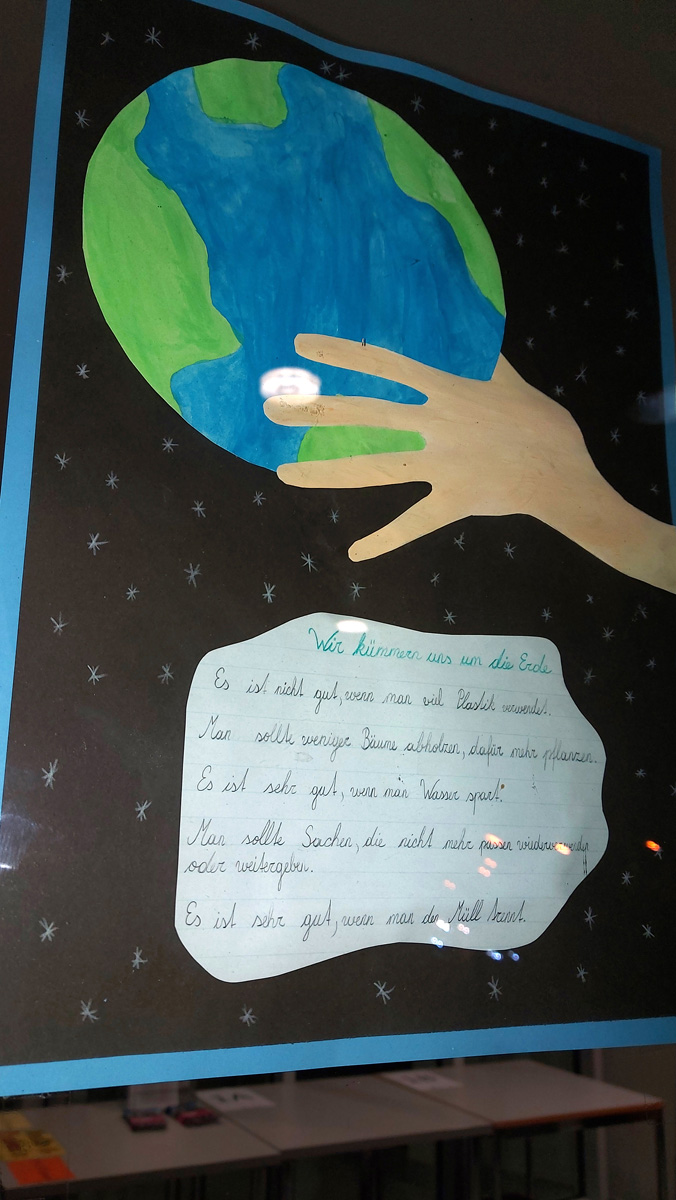 Wir kümmern uns um die Erde
Es ist nicht gut, wenn man viel Plastik verwendet.
Man sollte weniger Bäume abholzen, dafür mehr pflanzen.
Es ist sehr gut, wenn man Wasser spart.
Man sollte Sachen, die nicht mehr passen wiederverwenden
oder weitergeben.
Es ist sehr gut, wenn man den Müll trennt.